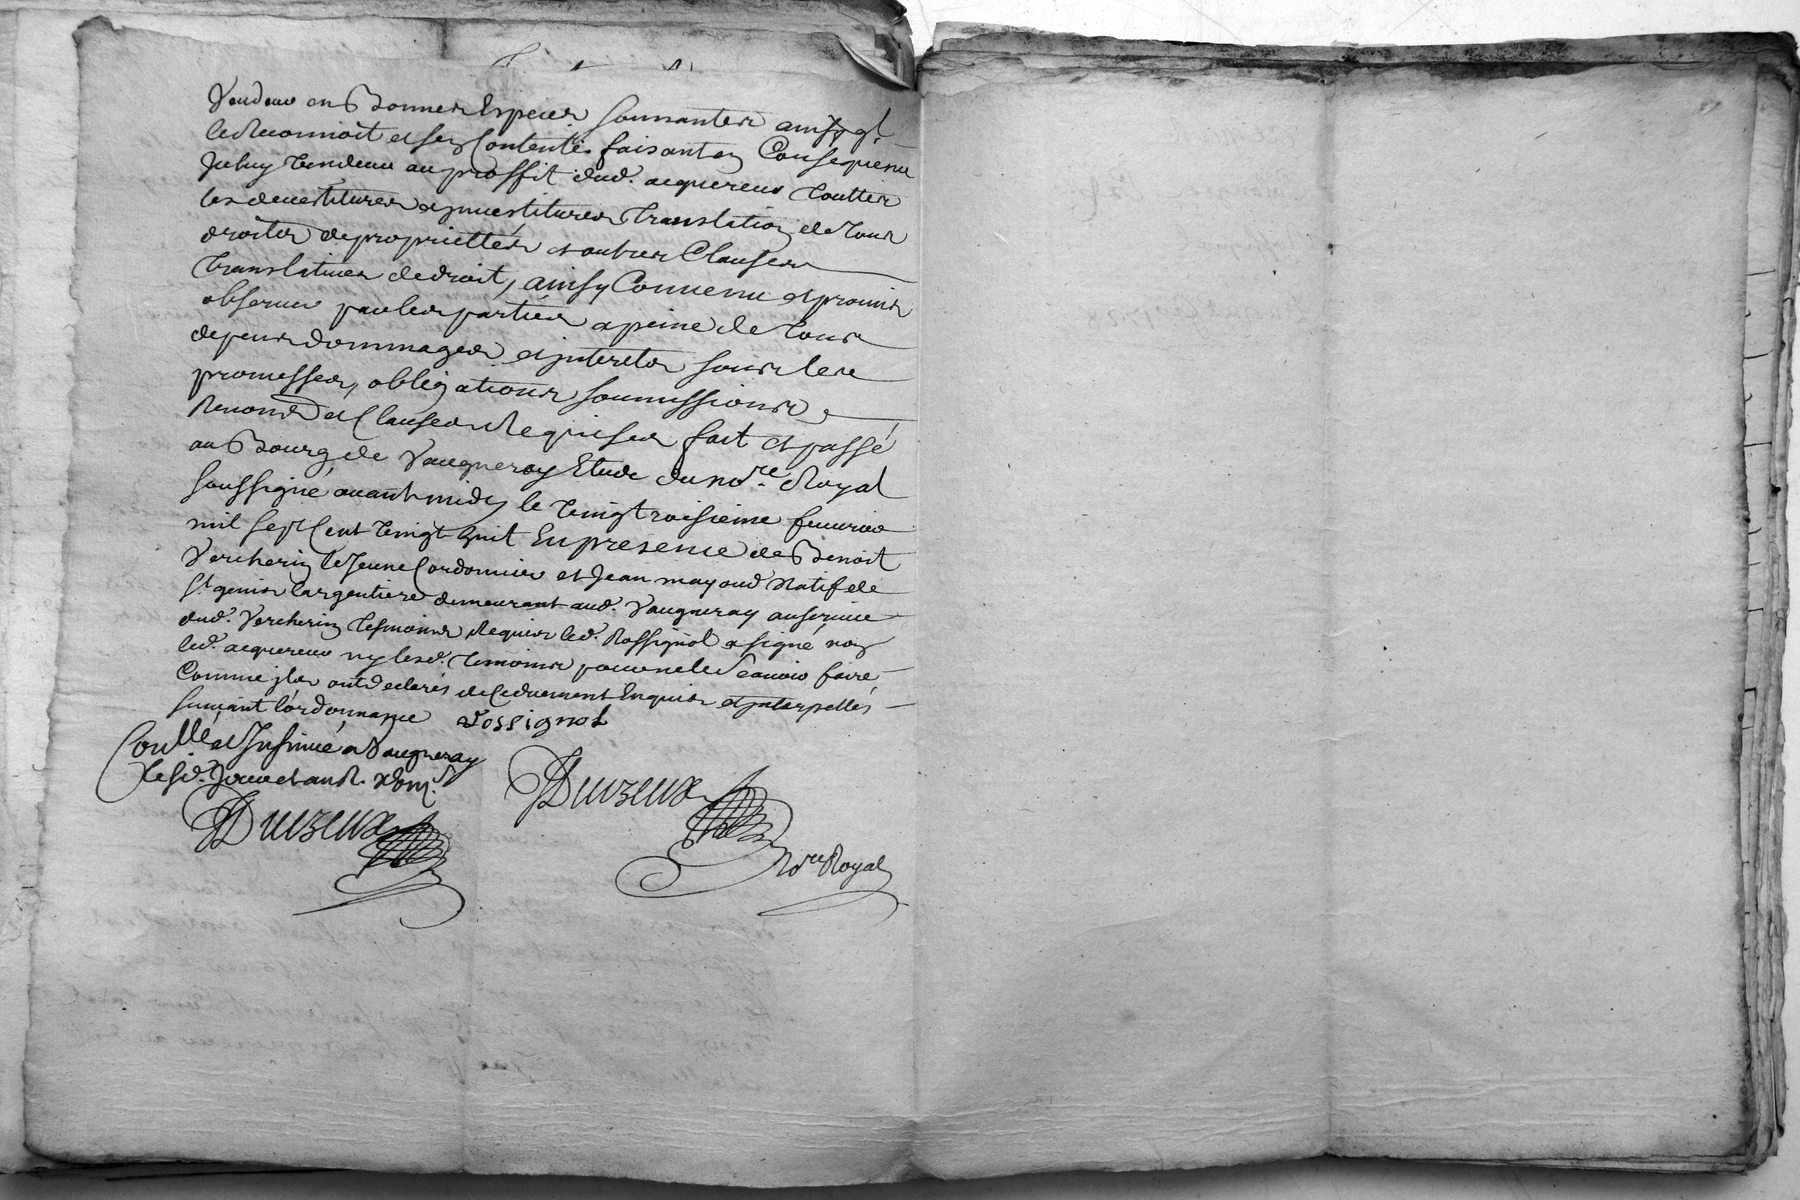 Vendeur en Bonnes Especes sonnantes ainsy ql
le Reconnoit et sen Contente faisant en Consequence
Jceluy Vendeur au proffit dud. acquereur Touttes
les devestitures Jnvestitures Translation de Tous
droits de proprietté et autres Clauses
Translatives de droit, ainsy Convenu et promis
observer par les parties a peine de Tous
depens dommages et jnterets sous les
promesses, obligations soumissions
Renons et Clauses Requises fait et passé
au Bourg de Vaugneray Etude du nore Royal
soussigné avant midy le Vingtroisieme fevrier
mil sept Cent Vingt huit En presence de Benoit
Vercherin le Jeune Cordonnier et Jean mayoud Natif de
St genis Largentiere demeurant aud. Vaugneray au service
dud. Vercherin Tesmoins Requis led. Rossignol a signé non
led. acquereur ny lesd. Temoins pour ne le Scavoir faire
Comme jls ont declarés de Ce duement Enquis et jnterpellés
suivant l'ordonnance Rossignol
Conllé et Jnsinué a Vaugneray
Lesd. Jour et an R.
Duvzeux Duvzeux
Nore Royal